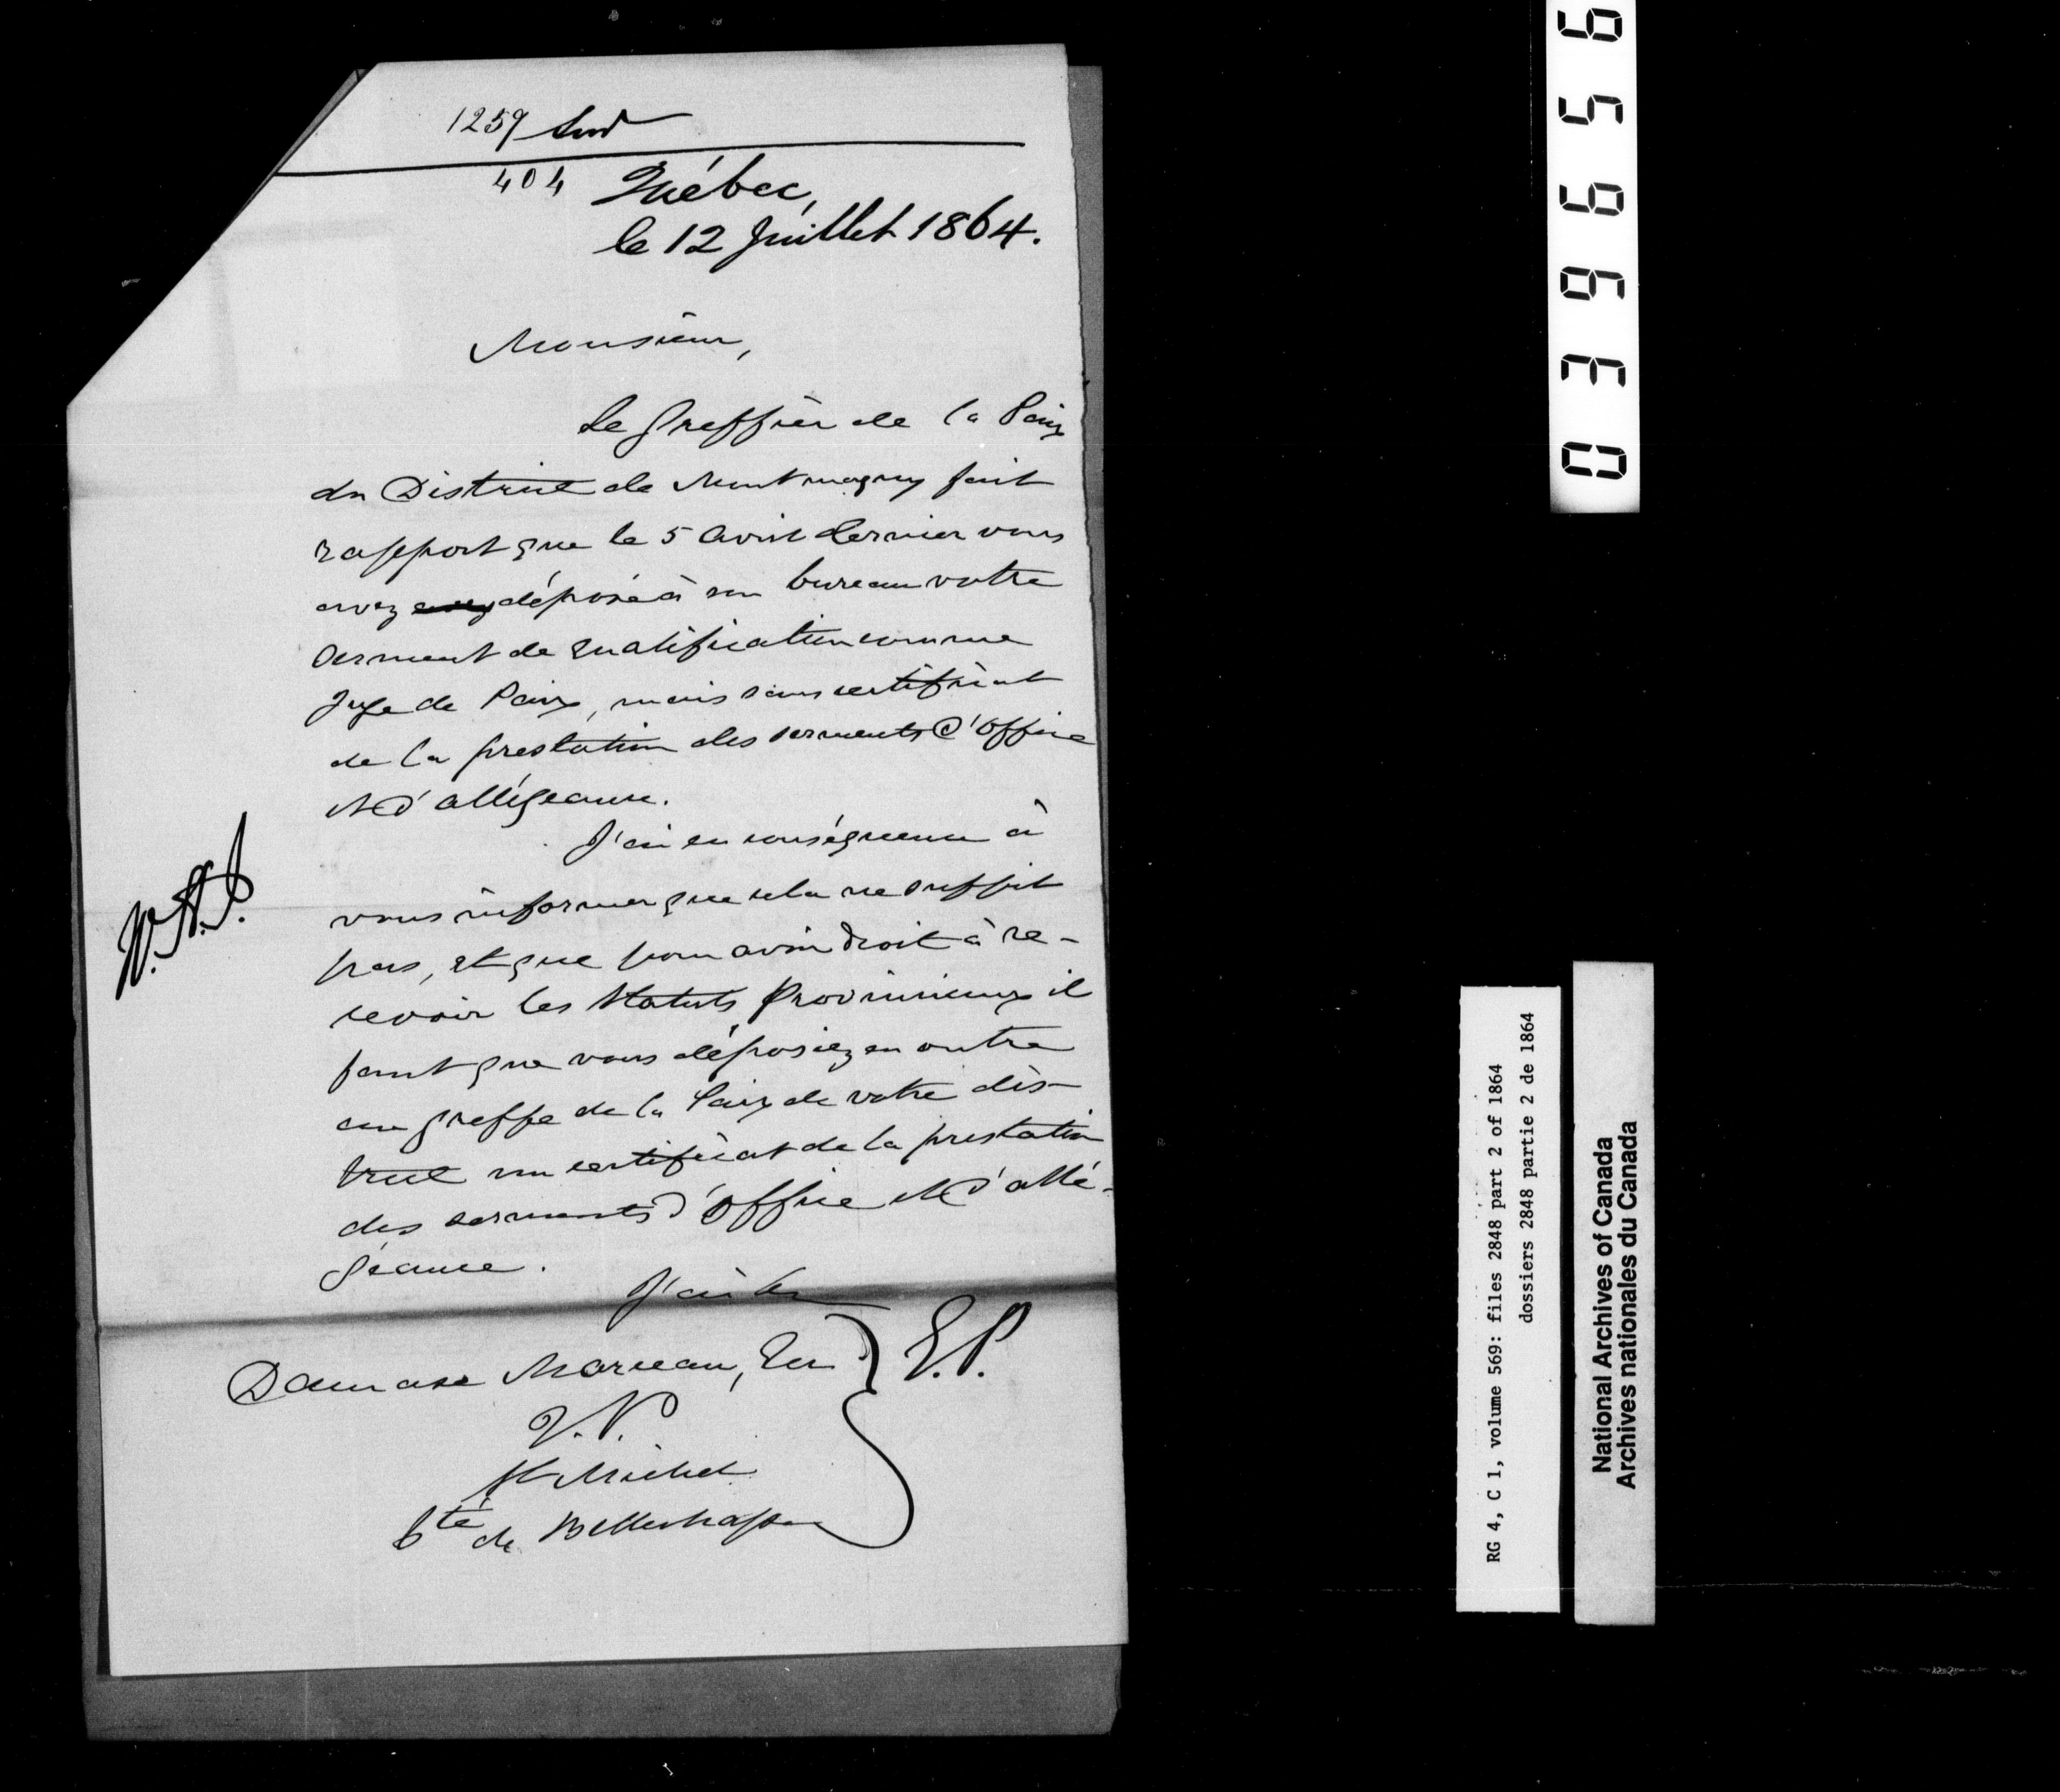 1259 Sud
404 Québec,
le 12 Juillet 1864.
Monsieur,
Le Greffier de la Paix
du District de Montmagny fait
rapport que le 5 Avril dernier vous
avez déposé à son bureau votre
serment de qualification comme
Juge de Paix, mais sans certificat
de la prestation des serments d'Office
et d'allégeance.
J'ai en conséquence à
vous informer que cela ne suffit
pas, et que pour avoir droit à re-
cevoir les Statuts Provinciaux il
faut que vous déposiez en outre
au greffe de la Paix de votre dis-
trict un certificat de la prestation
des serments d'Office et d'allé-
geance.
J'ai &c
Damase Marceau, Ecr } E.P.
J.P.
St Michel
Cté de Bellechasse
039656
RG 4, C 1, volume 569: files 2848 part 2 of 1864
dossiers 2848 partie 2 de 1864
National Archives of Canada
Archives nationales du Canada